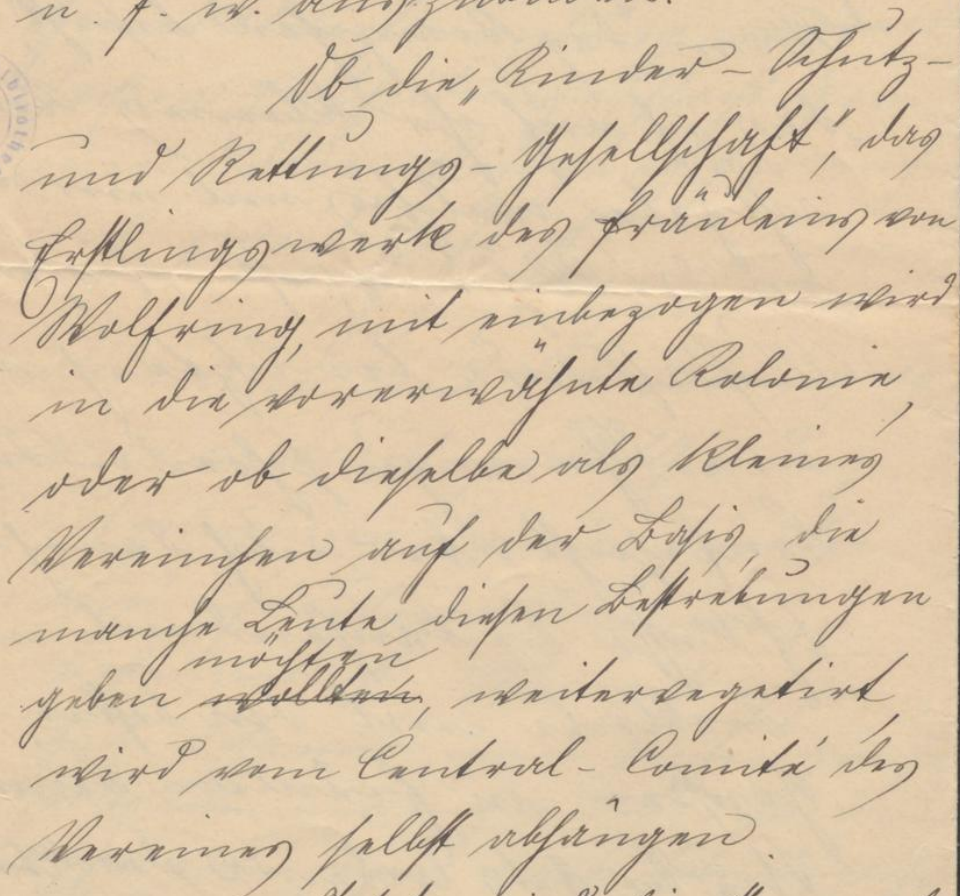 u. s. w. auszuüben.
Ob die „Kinder-Schutz-
und Rettungs-Gesellschaft", das
Erstlingswerk des Fräuleins von
Wolfring, mit einbezogen wird
in die vorerwähnte Kolonie,
oder ob dieselbe als kleines
Vereinchen auf der Basis, die
manche Leute diesen Bestrebungen
möchten
geben wollten, weitervegetirt,
wird vom Central-Comité des
Vereines selbst abhängen.